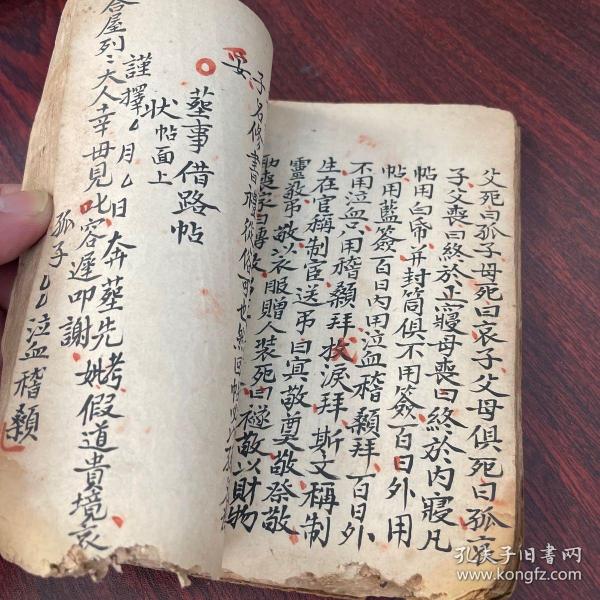 父死曰孤子母死曰哀子父母俱死曰孤哀
子父喪曰終於正寢母喪曰終於内寢凡
帖用白帋并封筒俱不用簽百日外用
帖用藍簽百日内用泣血稽顙拜百日外
不用泣血只用稽顙拜抆淚拜斯文稱制
生在官稱制宦送吊曰寘敬奠敬祭敬
靈敬吊敬以衣服贈人裝死曰襚敬以財物
助喪家曰賻敬
子名修書禮從俗可也
妥
葬事借路帖
狀帖面上
謹擇厶月厶日奔葬先考妣假道貴境哀
合屋列〻大人幸毋見叱容遲叩謝
孤子厶厶泣血稽顙
孔夫子旧书网
www.kongfz.com